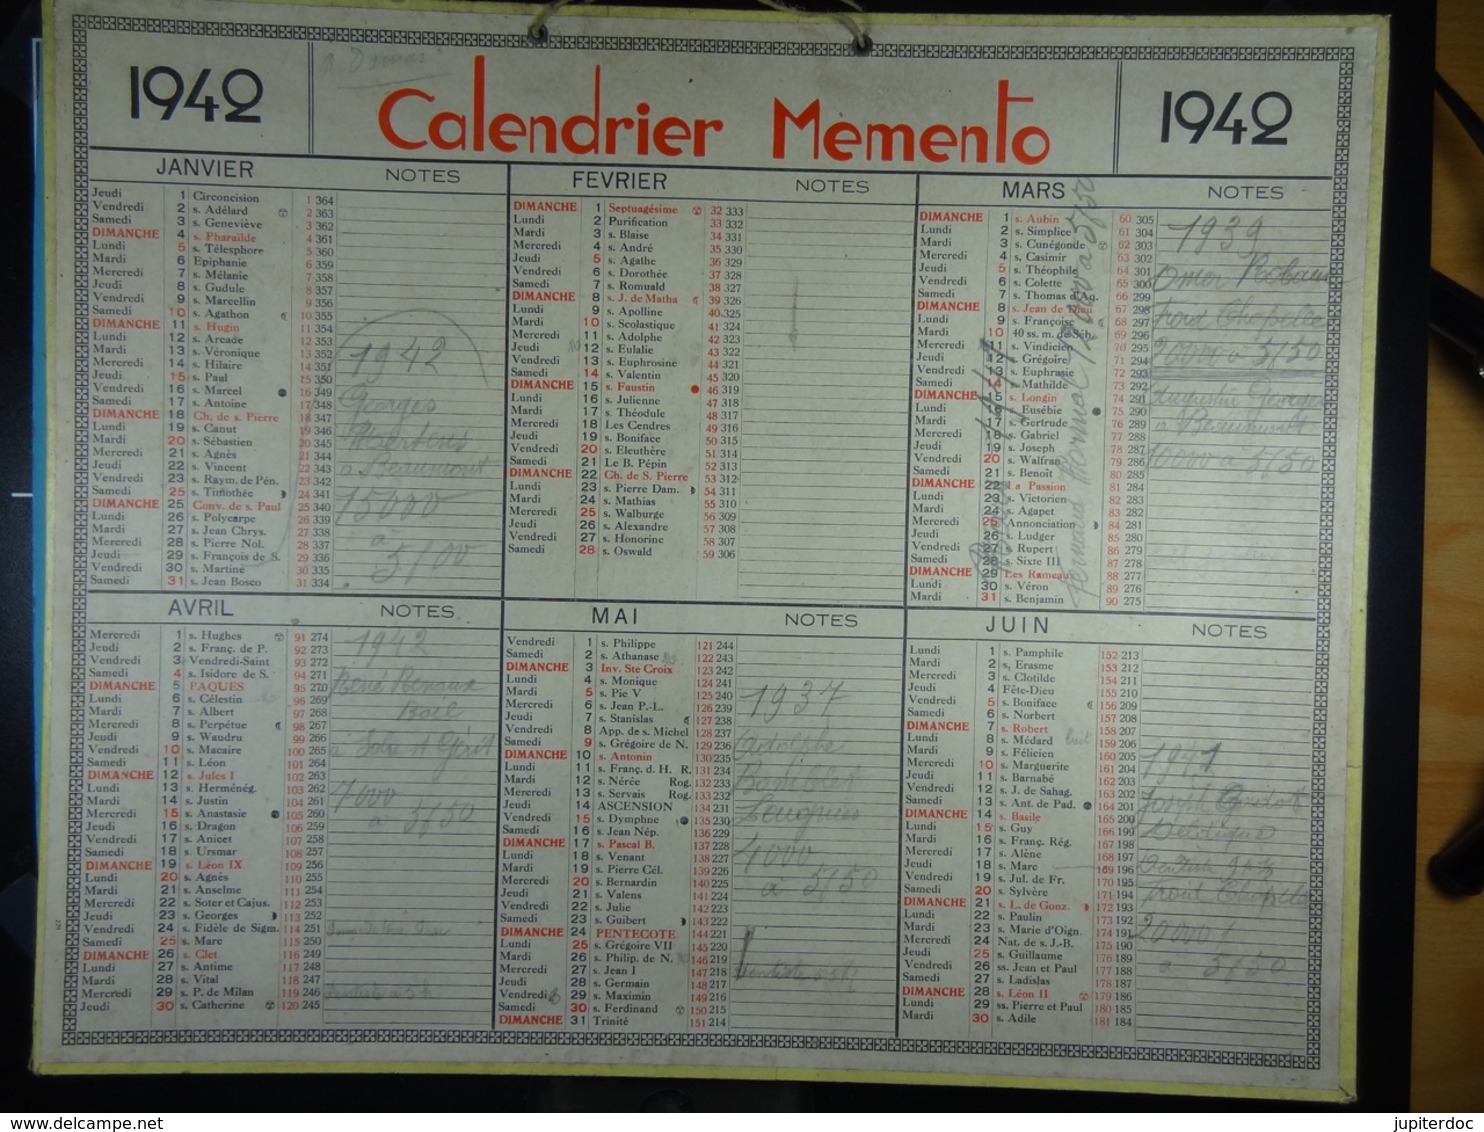 1942
Calendrier Memento
1942
JANVIER NOTES
Jeudi 1 Circoncision 1 364
Vendredi 2 s. Adélard 2 363
Samedi 3 s. Geneviève 3 362
DIMANCHE 4 s. Pharaïlde 4 361
Lundi 5 s. Télesphore 5 360
Mardi 6 Epiphanie 6 359
Mercredi 7 s. Mélanie 7 358
Jeudi 8 s. Gudule 8 357
Vendredi 9 s. Marcellin 9 356
Samedi 10 s. Agathon 10 355
DIMANCHE 11 s. Hugin 11 354
Lundi 12 s. Arcade 12 353
Mardi 13 s. Véronique 13 352
Mercredi 14 s. Hilaire 14 351
Jeudi 15 s. Paul 15 350
Vendredi 16 s. Marcel 16 349
Samedi 17 s. Antoine 17 348
DIMANCHE 18 Ch. de s. Pierre 18 347
Lundi 19 s. Canut 19 346
Mardi 20 s. Sébastien 20 345
Mercredi 21 s. Agnès 21 344
Jeudi 22 s. Vincent 22 343
Vendredi 23 s. Raym. de Pén. 23 342
Samedi 25 s. Timothée 24 341
DIMANCHE 25 Conv. de s. Paul 25 340
Lundi 26 s. Polycarpe 26 339
Mardi 27 s. Jean Chrys. 27 338
Mercredi 28 s. Pierre Nol. 28 337
Jeudi 29 s. François de S. 29 336
Vendredi 30 s. Martine 30 335
Samedi 31 s. Jean Bosco 31 334
1942
Georges
Mertens
a Beaumont
15000
a
5/00
FEVRIER NOTES
DIMANCHE 1 Septuagésime 32 333
Lundi 2 Purification 33 332
Mardi 3 s. Blaise 34 331
Mercredi 4 s. André 35 330
Jeudi 5 s. Agathe 36 329
Vendredi 6 s. Dorothée 37 328
Samedi 7 s. Romuald 38 327
DIMANCHE 8 s. J. de Matha 39 326
Lundi 9 s. Apolline 40 325
Mardi 10 s. Scolastique 41 324
Mercredi 11 s. Adolphe 42 323
Jeudi 12 s. Eulalie 43 322
Vendredi 13 s. Euphrosine 44 321
Samedi 14 s. Valentin 45 320
DIMANCHE 15 s. Faustin 46 319
Lundi 16 s. Julienne 47 318
Mardi 17 s. Théodule 48 317
Mercredi 18 Les Cendres 49 316
Jeudi 19 s. Boniface 50 315
Vendredi 20 s. Eleuthère 51 314
Samedi 21 Le B. Pépin 52 313
DIMANCHE 22 Ch. de S. Pierre 53 312
Lundi 23 s. Pierre Dam. 54 311
Mardi 24 s. Mathias 55 310
Mercredi 25 s. Walburge 56 309
Jeudi 26 s. Alexandre 57 308
Vendredi 27 s. Honorine 58 307
Samedi 28 s. Oswald 59 306
MARS NOTES
DIMANCHE 1 s. Aubin 60 305
Lundi 2 s. Simplice 61 304
Mardi 3 s. Cunégonde 62 303
Mercredi 4 s. Casimir 63 302
Jeudi 5 s. Théophile 64 301
Vendredi 6 s. Colette 65 300
Samedi 7 s. Thomas d'Aq. 66 299
DIMANCHE 8 s. Jean de Dieu 67 298
Lundi 9 s. Françoise 68 297
Mardi 10 40 ss. m. de Séb. 69 296
Mercredi 11 s. Vindicien 70 295
Jeudi 12 s. Grégoire 71 294
Vendredi 13 s. Euphrasie 72 293
Samedi 14 s. Mathilde 73 292
DIMANCHE 15 s. Longin 74 291
Lundi 16 s. Eusébie 75 290
Mardi 17 s. Gertrude 76 289
Mercredi 18 s. Gabriel 77 288
Jeudi 19 s. Joseph 78 287
Vendredi 20 s. Walfran 79 286
Samedi 21 s. Benoît 80 285
DIMANCHE 22 La Passion 81 284
Lundi 23 s. Victorien 82 283
Mardi 24 s. Agapet 83 282
Mercredi 25 Annonciation 84 281
Jeudi 26 s. Ludger 85 280
Vendredi 27 s. Rupert 86 279
Samedi 28 s. Sixte III 87 278
DIMANCHE 29 Les Rameaux 88 277
Lundi 30 s. Véron 89 276
Mardi 31 s. Benjamin 90 275
1939
Omer
froid Chapelle
20000 a 5/50
Augustin Georges
a Beaumont
10000 5/50
AVRIL NOTES
Mercredi 1 s. Hughes 91 274
Jeudi 2 s. Franç. de P. 92 273
Vendredi 3 Vendredi-Saint 93 272
Samedi 4 s. Isidore de S. 94 271
DIMANCHE 5 PAQUES 95 270
Lundi 6 s. Célestin 96 269
Mardi 7 s. Albert 97 268
Mercredi 8 s. Perpétue 98 267
Jeudi 9 s. Waudru 99 266
Vendredi 10 s. Macaire 100 265
Samedi 11 s. Léon 101 264
DIMANCHE 12 s. Jules I 102 263
Lundi 13 s. Herménég. 103 262
Mardi 14 s. Justin 104 261
Mercredi 15 s. Anastasie 105 260
Jeudi 16 s. Dragon 106 259
Vendredi 17 s. Anicet 107 258
Samedi 18 s. Ursmar 108 257
DIMANCHE 19 s. Léon IX 109 256
Lundi 20 s. Agnès 110 255
Mardi 21 s. Anselme 111 254
Mercredi 22 s. Soter et Cajus. 112 253
Jeudi 23 s. Georges 113 252
Vendredi 24 s. Fidèle de Sigm. 114 251
Samedi 25 s. Marc 115 250
DIMANCHE 26 s. Clet 116 249
Lundi 27 s. Antime 117 248
Mardi 28 s. Vital 118 247
Mercredi 29 s. P. de Milan 119 246
Jeudi 30 s. Catherine 120 245
1942
René
a Solre St Géry
7000
a 5/50
Dentiste a 5 h
MAI NOTES
Vendredi 1 s. Philippe 121 244
Samedi 2 s. Athanase 122 243
DIMANCHE 3 Inv. Ste Croix 123 242
Lundi 4 s. Monique 124 241
Mardi 5 s. Pie V 125 240
Mercredi 6 s. Jean P.-L. 126 239
Jeudi 7 s. Stanislas 127 238
Vendredi 8 App. de s. Michel 128 237
Samedi 9 s. Grégoire de N. 129 236
DIMANCHE 10 s. Antonin 130 235
Lundi 11 s. Franç. d. H. R. 131 234
Mardi 12 s. Nérée Rog. 132 233
Mercredi 13 s. Servais Rog. 133 232
Jeudi 14 ASCENSION 134 231
Vendredi 15 s. Dymphne 135 230
Samedi 16 s. Jean Nép. 136 229
DIMANCHE 17 s. Pascal B. 137 228
Lundi 18 s. Venant 138 227
Mardi 19 s. Pierre Cél. 139 226
Mercredi 20 s. Bernardin 140 225
Jeudi 21 s. Valens 141 224
Vendredi 22 s. Julie 142 223
Samedi 23 s. Guibert 143 222
DIMANCHE 24 PENTECOTE 144 221
Lundi 25 s. Grégoire VII 145 220
Mardi 26 s. Philip. de N. 146 219
Mercredi 27 s. Jean I 147 218
Jeudi 28 s. Germain 148 217
Vendredi 29 s. Maximin 149 216
Samedi 30 s. Ferdinand 150 215
DIMANCHE 31 Trinité 151 214
1937
Adolphe
Leugnies
4000
a 5/50
JUIN NOTES
Lundi 1 s. Pamphile 152 213
Mardi 2 s. Erasme 153 212
Mercredi 3 s. Clotilde 154 211
Jeudi 4 Fête-Dieu 155 210
Vendredi 5 s. Boniface 156 209
Samedi 6 s. Norbert 157 208
DIMANCHE 7 s. Robert 158 207
Lundi 8 s. Médard 159 206
Mardi 9 s. Félicien 160 205
Mercredi 10 s. Marguerite 161 204
Jeudi 11 s. Barnabé 162 203
Vendredi 12 s. J. de Sahag. 163 202
Samedi 13 s. Ant. de Pad. 164 201
DIMANCHE 14 s. Basile 165 200
Lundi 15 s. Guy 166 199
Mardi 16 s. Franç. Rég. 167 198
Mercredi 17 s. Alène 168 197
Jeudi 18 s. Marc 169 196
Vendredi 19 s. Jul. de Fr. 170 195
Samedi 20 s. Sylvère 171 194
DIMANCHE 21 s. L. de Gonz. 172 193
Lundi 22 s. Paulin 173 192
Mardi 23 s. Marie d'Oign. 174 191
Mercredi 24 Nat. de s. J.-B. 175 190
Jeudi 25 s. Guillaume 176 189
Vendredi 26 ss. Jean et Paul 177 188
Samedi 27 s. Ladislas 178 187
DIMANCHE 28 s. Léon II 179 186
Lundi 29 ss. Pierre et Paul 180 185
Mardi 30 s. Adile 181 184
1941
Joseph
froid Chapelle
20000
a 5/50
jupiterdoc